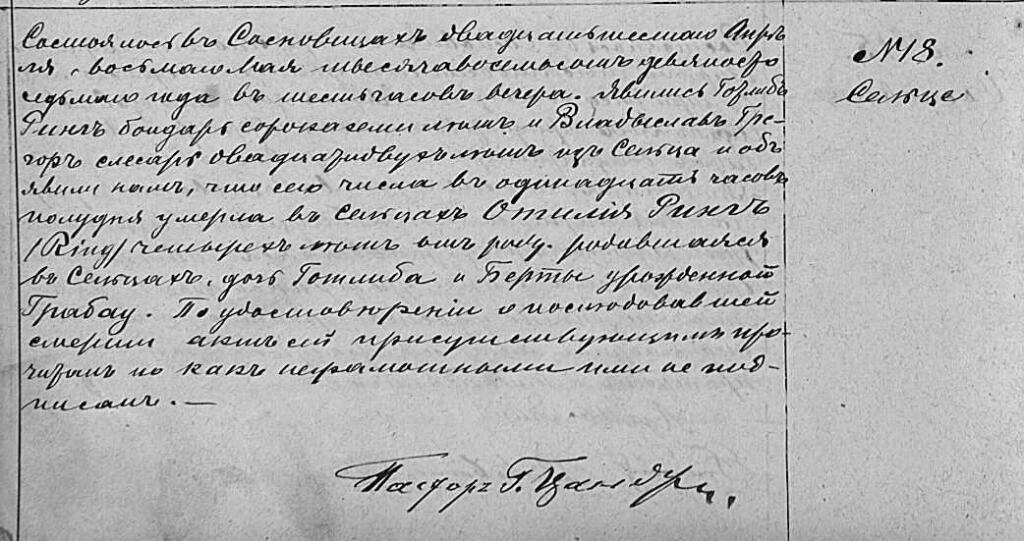 Состоялось въ Сосновицахъ двадцать шестаго Апрѣ-
ля, восьмаго Мая тысяча восемьсотъ девяносто
седьмаго года въ шесть часовъ вечера. Явились Готлибъ
Рингъ бондарь сорока семи лѣтъ и Владыславъ Гре-
горъ слесарь двадцати двухъ лѣтъ изъ Сельца и объ
явили намъ, что сего числа въ одинадцать часовъ
полудня умерла въ Сельцахъ Отилія Рингъ
(Ring) четырехъ лѣтъ отъ роду, родившаяся
въ Сельцахъ, дочь Готлиба и Берты урожденной
Грабау. По удостовѣреніи о послѣдовавшей
смерти актъ сей присутствующимъ про-
читанъ но какъ неграмотными ими не под-
писанъ. —
№ 18.
Сельце
Пасторъ Г. Цандеръ.